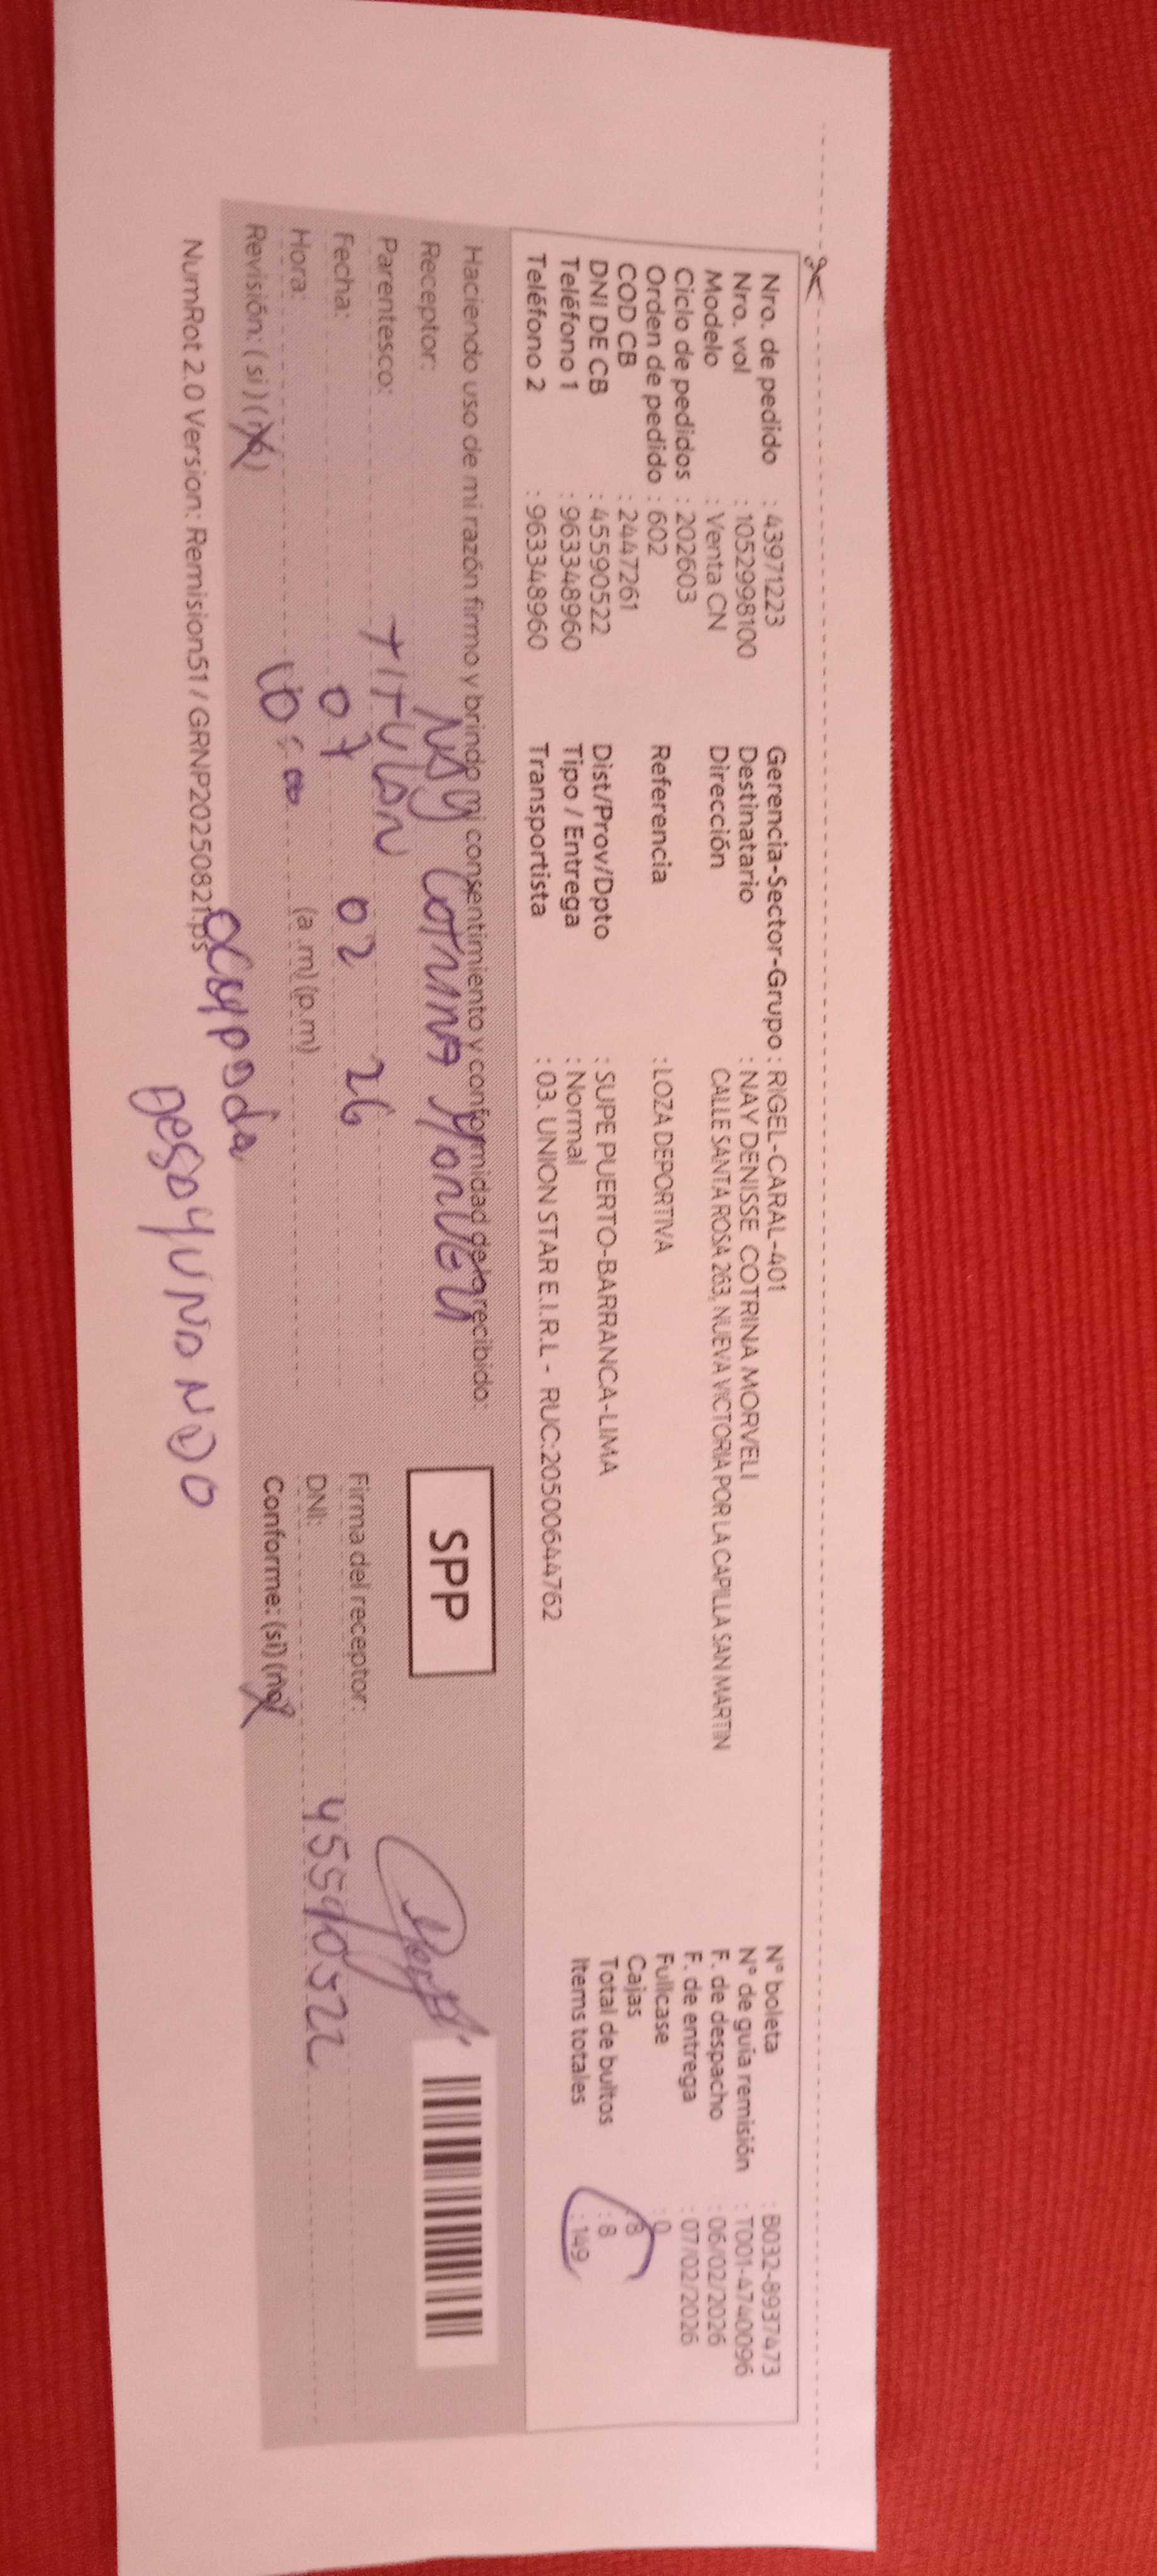 Nro. de pedido : 43971223
Nro. vol : 1052998100
Modelo : Venta CN
Ciclo de pedidos : 202603
Orden de pedido : 602
COD CB : 2447261
DNI DE CB : 45590522
Teléfono 1 : 963348960
Teléfono 2 : 963348960
Gerencia-Sector-Grupo : RIGEL-CARAL-401
Destinatario : NAY DENISSE COTRINA MORVELI
Dirección CALLE SANTA ROSA 263, NUEVA VICTORIA POR LA CAPILLA SAN MARTIN
Referencia : LOZA DEPORTIVA
Dist/Prov/Dpto : SUPE PUERTO-BARRANCA-LIMA
Tipo / Entrega : Normal
Transportista : 03. UNION STAR E.I.R.L - RUC:20500644762
N° boleta : B032-8937473
N° de guía remisión : T001-4740096
F. de despacho : 06/02/2026
F. de entrega : 07/02/2026
Fullcase : 0
Cajas : 8
Total de bultos : 8
Items totales : 149
Haciendo uso de mi razón firmo y brindo mi consentimiento y conformidad de lo recibido:
Receptor: Nay Cotrina
Parentesco: TITULAR
Fecha: 07 02 26
Hora: 10:00 (a.m) (p.m)
Revisión: (si) (no)
SPP
Firma del receptor:
DNI: 45590522
Conforme: (si) (no)
NumRot 2.0 Version: Remision51 / GRNP20250821.ps
ocupada
Desayunando